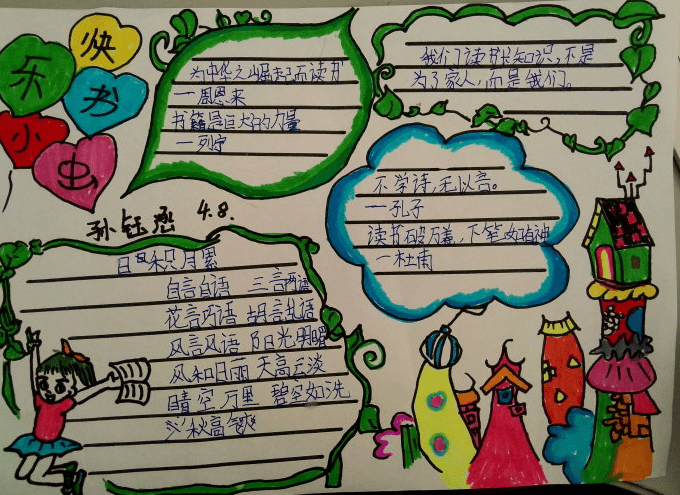 快
乐
书
小
虫
为中华之崛起而读书
一周恩来
书籍是巨大的力量
一列宁
我们读书长知识,不是
为了家人,而是我们。
不学诗,无以言。
一孔子
读书破万義,下笔如有神
一杜甫
孙钰 4.8.
日积月累
自言自语 三言两语
花言巧语 胡言乱语
风言风语 阳光明媚
风和日丽 天高云淡
晴空万里 碧空如洗
秋高气爽